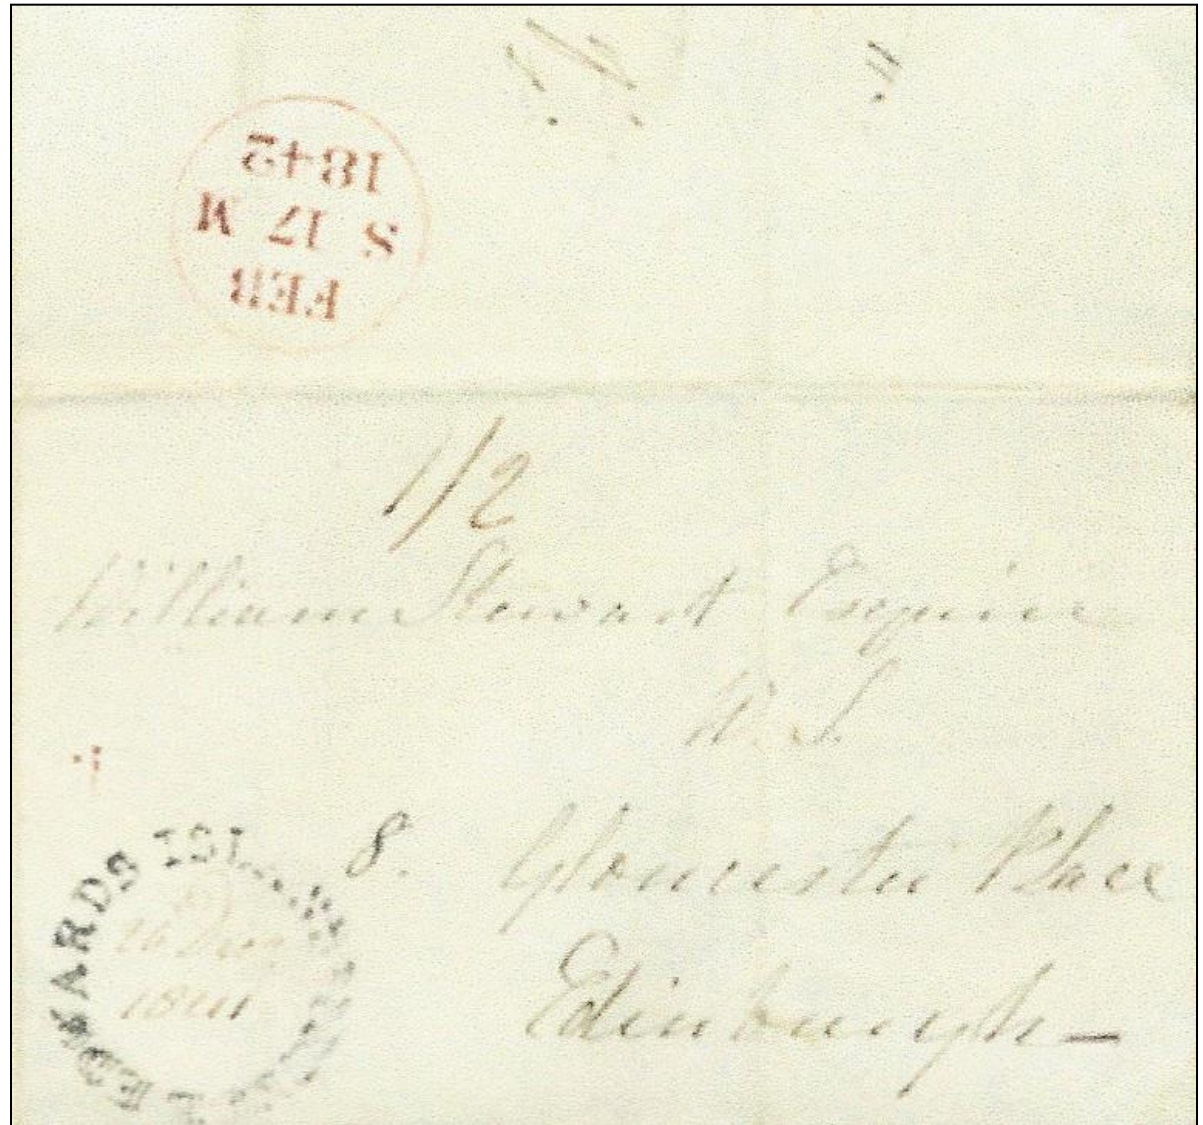 1842
S 17 M
FEB
1/2
William Stewart Esquire
W. S.
8. Gloucester Place
Edinburgh –
EDWARDS ISL
1841